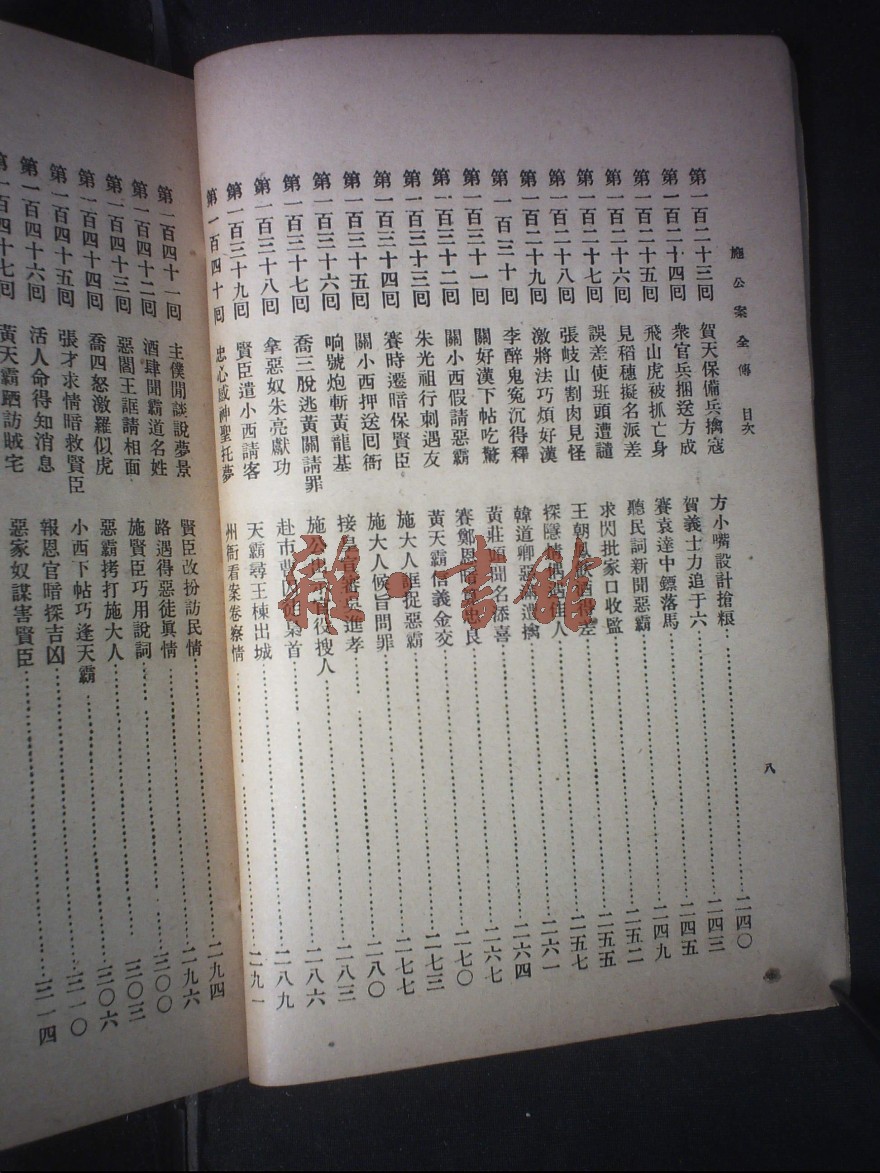 施公案全傳 目次 八
第一百二十三回 賀天保備兵擒寇 方小嘴設計搶粮 二四〇
第一百二十四回 衆官兵捆送方成 賀義士力追于六 二四三
第一百二十五回 飛山虎被抓亡身 賽袁達中鏢落馬 二四五
第一百二十六回 見稻穗擬名派差 聽民詞新聞惡霸 二四九
第一百二十七回 誤差使班頭遭譴 求閃批家口收監 二五二
第一百二十八回 張岐山割肉見怪 王朝鳳 得差 二五五
第一百二十九回 激將法巧煩好漢 探隧 佳人 二五七
第一百三十回 李醉鬼冤沉得釋 韓道卿惡 遭擒 二六一
第一百三十一回 關好漢下帖吃驚 黃莊頭聞名添喜 二六四
第一百三十二回 關小西假請惡霸 賽鄭恩暗算忠良 二六七
第一百三十三回 朱光祖行刺遇友 黃天霸信義金交 二七〇
第一百三十四回 賽時遷暗保賢臣 施大人誆捉惡霸 二七三
第一百三十五回 關小西押送回衙 施大人候旨問罪 二七七
第一百三十六回 响號炮斬黃龍基 接皇宣 進孝 二八〇
第一百三十七回 喬三脫逃黃關請罪 施公 官役搜人 二八三
第一百三十八回 拿惡奴朱亮獻功 赴市曹 梟首 二八六
第一百三十九回 賢臣遣小西請客 天霸尋王棟出城 二八九
第一百四十回 忠心感神聖托夢 州衙看案卷察情 二九一
第一百四十一回 主僕閒談說夢景 賢臣改扮訪民情 二九四
第一百四十二回 酒肆聞霸道名姓 路遇得惡徒眞情 二九六
第一百四十三回 惡閻王誆請相面 施賢臣巧用說詞 三〇〇
第一百四十四回 喬四怒激羅似虎 惡霸拷打施大人 三〇三
第一百四十五回 張才求情暗救賢臣 小西下帖巧逢天霸 三〇六
第一百四十六回 活人命得知消息 報恩官暗探吉凶 三一〇
第一百四十七回 黃天霸晒訪賊宅 惡家奴謀害賢臣 三一四
雜·書館